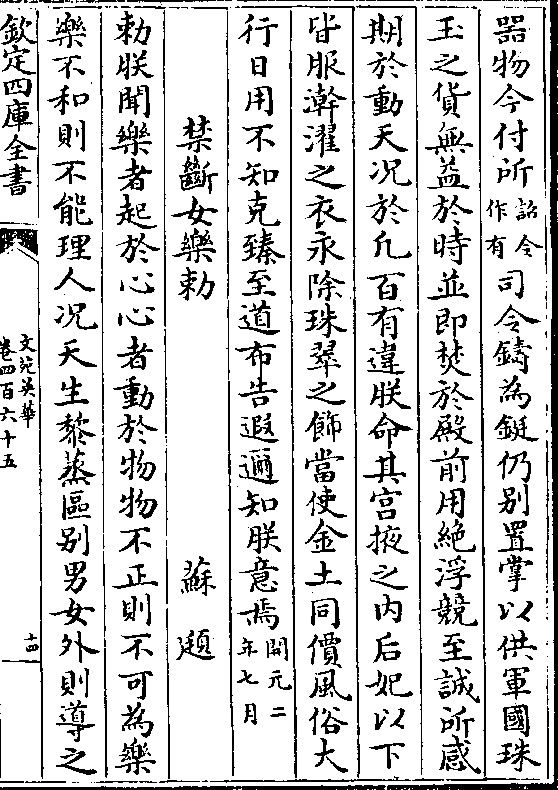 器物今付所詔令作有司令鑄為鋌仍别置掌以供軍國珠
玉之貨無益於時並即焚於殿前用絶浮競至誠所感
期於動天况於凡百有違朕命其宫掖之内后妃以下
皆服澣濯之衣永除珠翠之飾當使金土同價風俗大
行日用不知克臻至道布告遐邇知朕意焉開元二年七月
禁斷女樂勅 蘇頲
勅朕聞樂者起於心心者動於物物不正則不可為樂
樂不和則不能理人况天生黎蒸區别男女外則導之
欽定四庫全書
文苑英華
卷四百六十五
十四